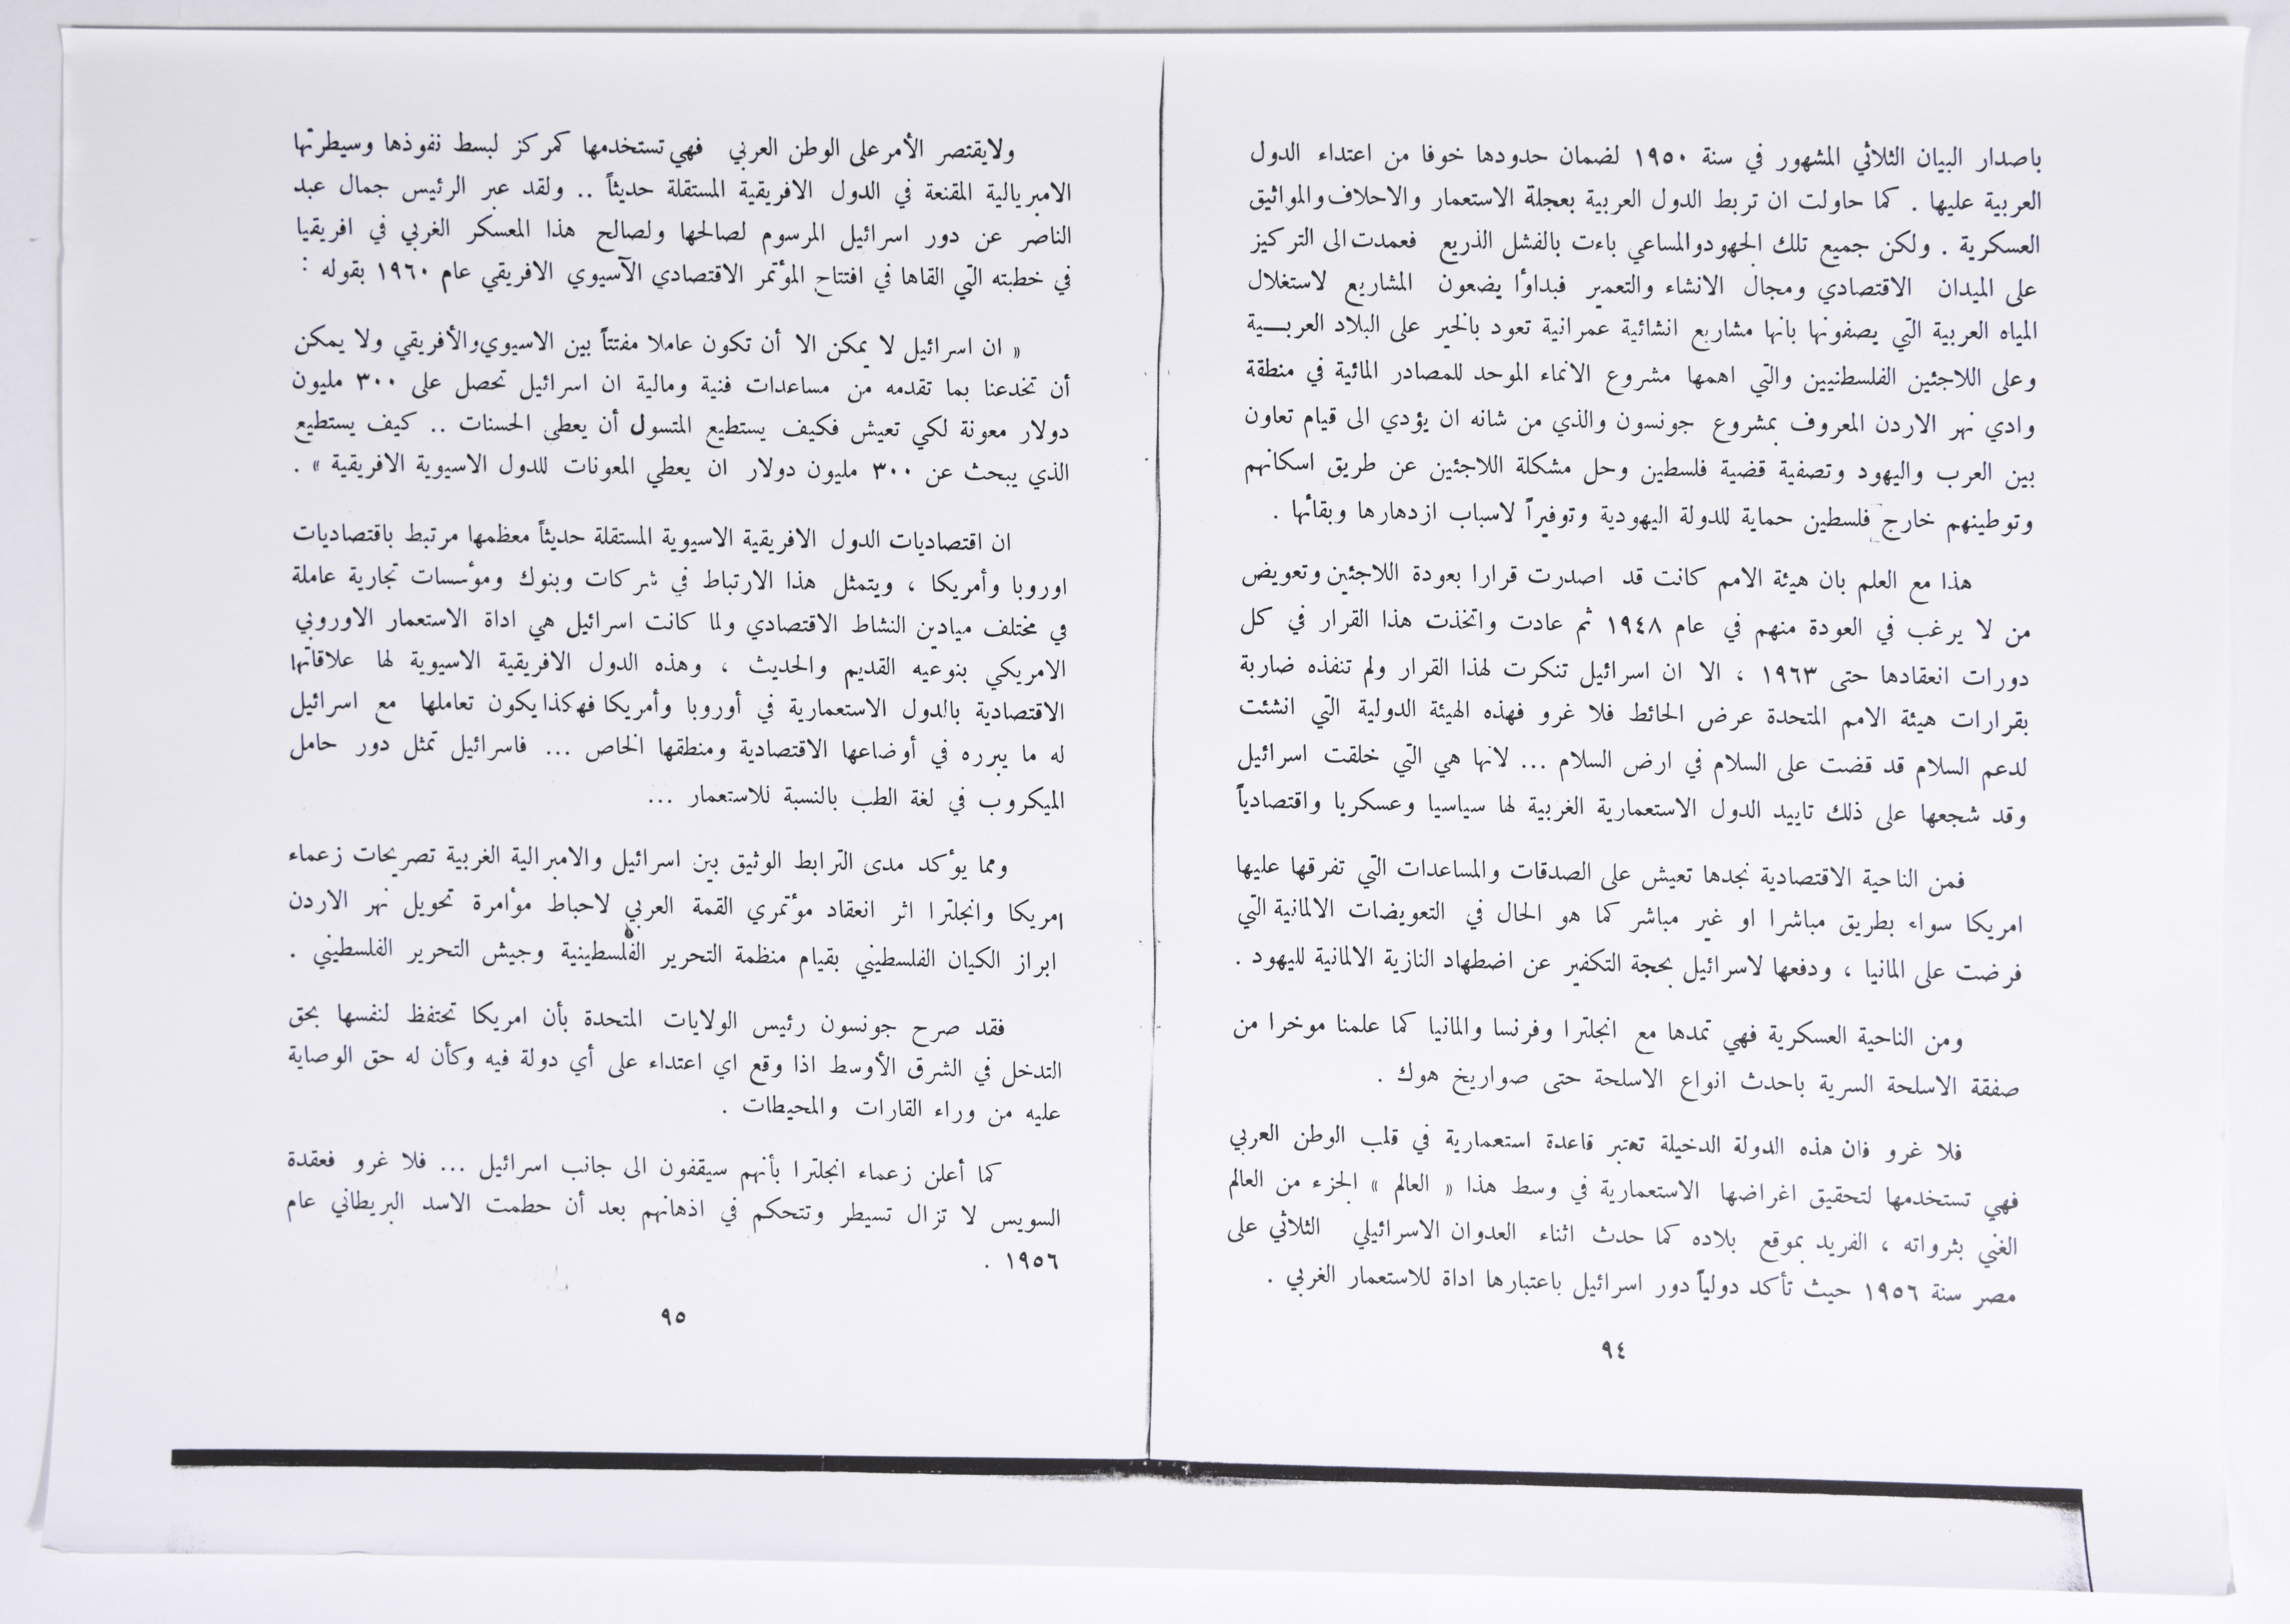 باصدار البيان الثلاثي المشهور في سنة ١٩٥٠ لضمان حدودها خوفا من اعتداء الدول
العربية عليها . كما حاولت ان تربط الدول العربية بعجلة الاستعمار والاحلاف والمواثيق
العسكرية . ولكن جميع تلك الجهود والمساعي باءت بالفشل الذريع فعمدت الى التركيز
على الميدان الاقتصادي ومجال الانشاء والتعمير فبداؤا يضعون المشاريع لاستغلال
المياه العربية التي يصفونها بانها مشاريع انشائية عمرانية تعود بالخير على البلاد العربـــية
وعلى اللاجئين الفلسطنيين والتي اهمها مشروع الانماء الموحد للمصادر المائية في منطقة
وادي نهر الاردن المعروف بمشروع جونسون والذي من شانه ان يؤدي الى قيام تعاون
بين العرب واليهود وتصفية قضية فلسطين وحل مشكلة اللاجئين عن طريق اسكانهم
وتوطينهم خارج فلسطين حماية للدولة اليهودية وتوفيراً لاسباب ازدهارها وبقائها .
هذا مع العلم بان هيئة الامم كانت قد اصدرت قرارا بعودة اللاجئين وتعويض
من لا يرغب في العودة منهم في عام ١٩٤٨ ثم عادت واتخذت هذا القرار في كل
دورات انعقادها حتى ١٩٦٣ ، الا ان اسرائيل تنكرت لهذا القرار ولم تنفذه ضاربة
بقرارات هيئة الامم المتحدة عرض الحائط فلا غرو فهذه الهيئة الدولية التي انشئت
لدعم السلام قد قضت على السلام في ارض السلام ... لانها هي التي خلقت اسرائيل
وقد شجعها على ذلك تاييد الدول الاستعمارية الغربية لها سياسيا وعسكريا واقتصادياً
فمن الناحية الاقتصادية نجدها تعيش على الصدقات والمساعدات التي تفرقها عليها
امريكا سواء بطريق مباشرا او غير مباشر كما هو الحال في التعويضات الالمانية التي
فرضت على المانيا ، ودفعها لاسرائيل بحجة التكفير عن اضطهاد النازية الالمانية لليهود .
ومن الناحية العسكرية فهي تمدها مع انجلترا وفرنسا والمانيا كما علمنا موخرا من
صفقة الاسلحة السرية باحدث انواع الاسلحة حتى صواريخ هوك .
فلا غرو فان هذه الدولة الدخيلة تعتبر قاعدة استعمارية في قلب الوطن العربي
فهي تستخدمها لتحقيق اغراضها الاستعمارية في وسط هذا « العالم » الجزء من العالم
الغني بثرواته ، الفريد بموقع بلاده كما حدث اثناء العدوان الاسرائيلي الثلاثي على
مصر سنة ١٩٥٦ حيث تأكد دولياً دور اسرائيل باعتبارها اداة للاستعمار الغربي .
٩٤
ولايقتصر الأمر على الوطن العربي فهي تستخدمها كمركز لبسط نفوذها وسيطرتها
الامبريالية المقنعة في الدول الافريقية المستقلة حديثاً .. ولقد عبر الرئيس جمال عبد
الناصر عن دور اسرائيل المرسوم لصالحها ولصالح هذا المعسكر الغربي في افريقيا
في خطبته التي القاها في افتتاح المؤتمر الاقتصادي الآسيوي الافريقي عام ١٩٦٠ بقوله :
« ان اسرائيل لا يمكن الا أن تكون عاملا مفتتاً بين الاسيوي والأفريقي ولا يمكن
أن تخدعنا بما تقدمه من مساعدات فنية ومالية ان اسرائيل تحصل على ٣٠٠ مليون
دولار معونة لكي تعيش فكيف يستطيع المتسول أن يعطى الحسنات .. كيف يستطيع
الذي يبحث عن ٣٠٠ مليون دولار ان يعطي المعونات للدول الاسيوية الافريقية » .
ان اقتصاديات الدول الافريقية الاسيوية المستقلة حديثاً معظمها مرتبط باقتصاديات
اوروبا وأمريكا ، ويتمثل هذا الارتباط في شركات وبنوك ومؤسسات تجارية عاملة
في مختلف ميادين النشاط الاقتصادي ولما كانت اسرائيل هي اداة الاستعمار الاوروبي
الامريكي بنوعيه القديم والحديث ، وهذه الدول الافريقية الاسيوية لها علاقاتها
الاقتصادية بالدول الاستعمارية في أوروبا وأمريكا فهكذا يكون تعاملها مع اسرائيل
له ما يبرره في أوضاعها الاقتصادية ومنطقها الخاص ... فاسرائيل تمثل دور حامل
الميكروب في لغة الطب بالنسبة للاستعمار ...
ومما يؤكد مدى الترابط الوثيق بين اسرائيل والامبرالية الغربية تصريحات زعماء
امريكا وانجلترا اثر انعقاد مؤتمري القمة العربي لاحباط مؤامرة تحويل نهر الاردن
ابراز الكيان الفلسطيني بقيام منظمة التحرير الفلسطينية وجيش التحرير الفلسطيني .
فقد صرح جونسون رئيس الولايات المتحدة بأن امريكا تحتفظ لنفسها بحق
التدخل في الشرق الأوسط اذا وقع اي اعتداء على أي دولة فيه وكأن له حق الوصاية
عليه من وراء القارات والمحيطات .
كما أعلن زعماء انجلترا بأنهم سيقفون الى جانب اسرائيل ... فلا غرو فعقدة
السويس لا تزال تسيطر وتتحكم في اذهانهم بعد أن حطمت الاسد البريطاني عام
١٩٥٦ .
٩٥